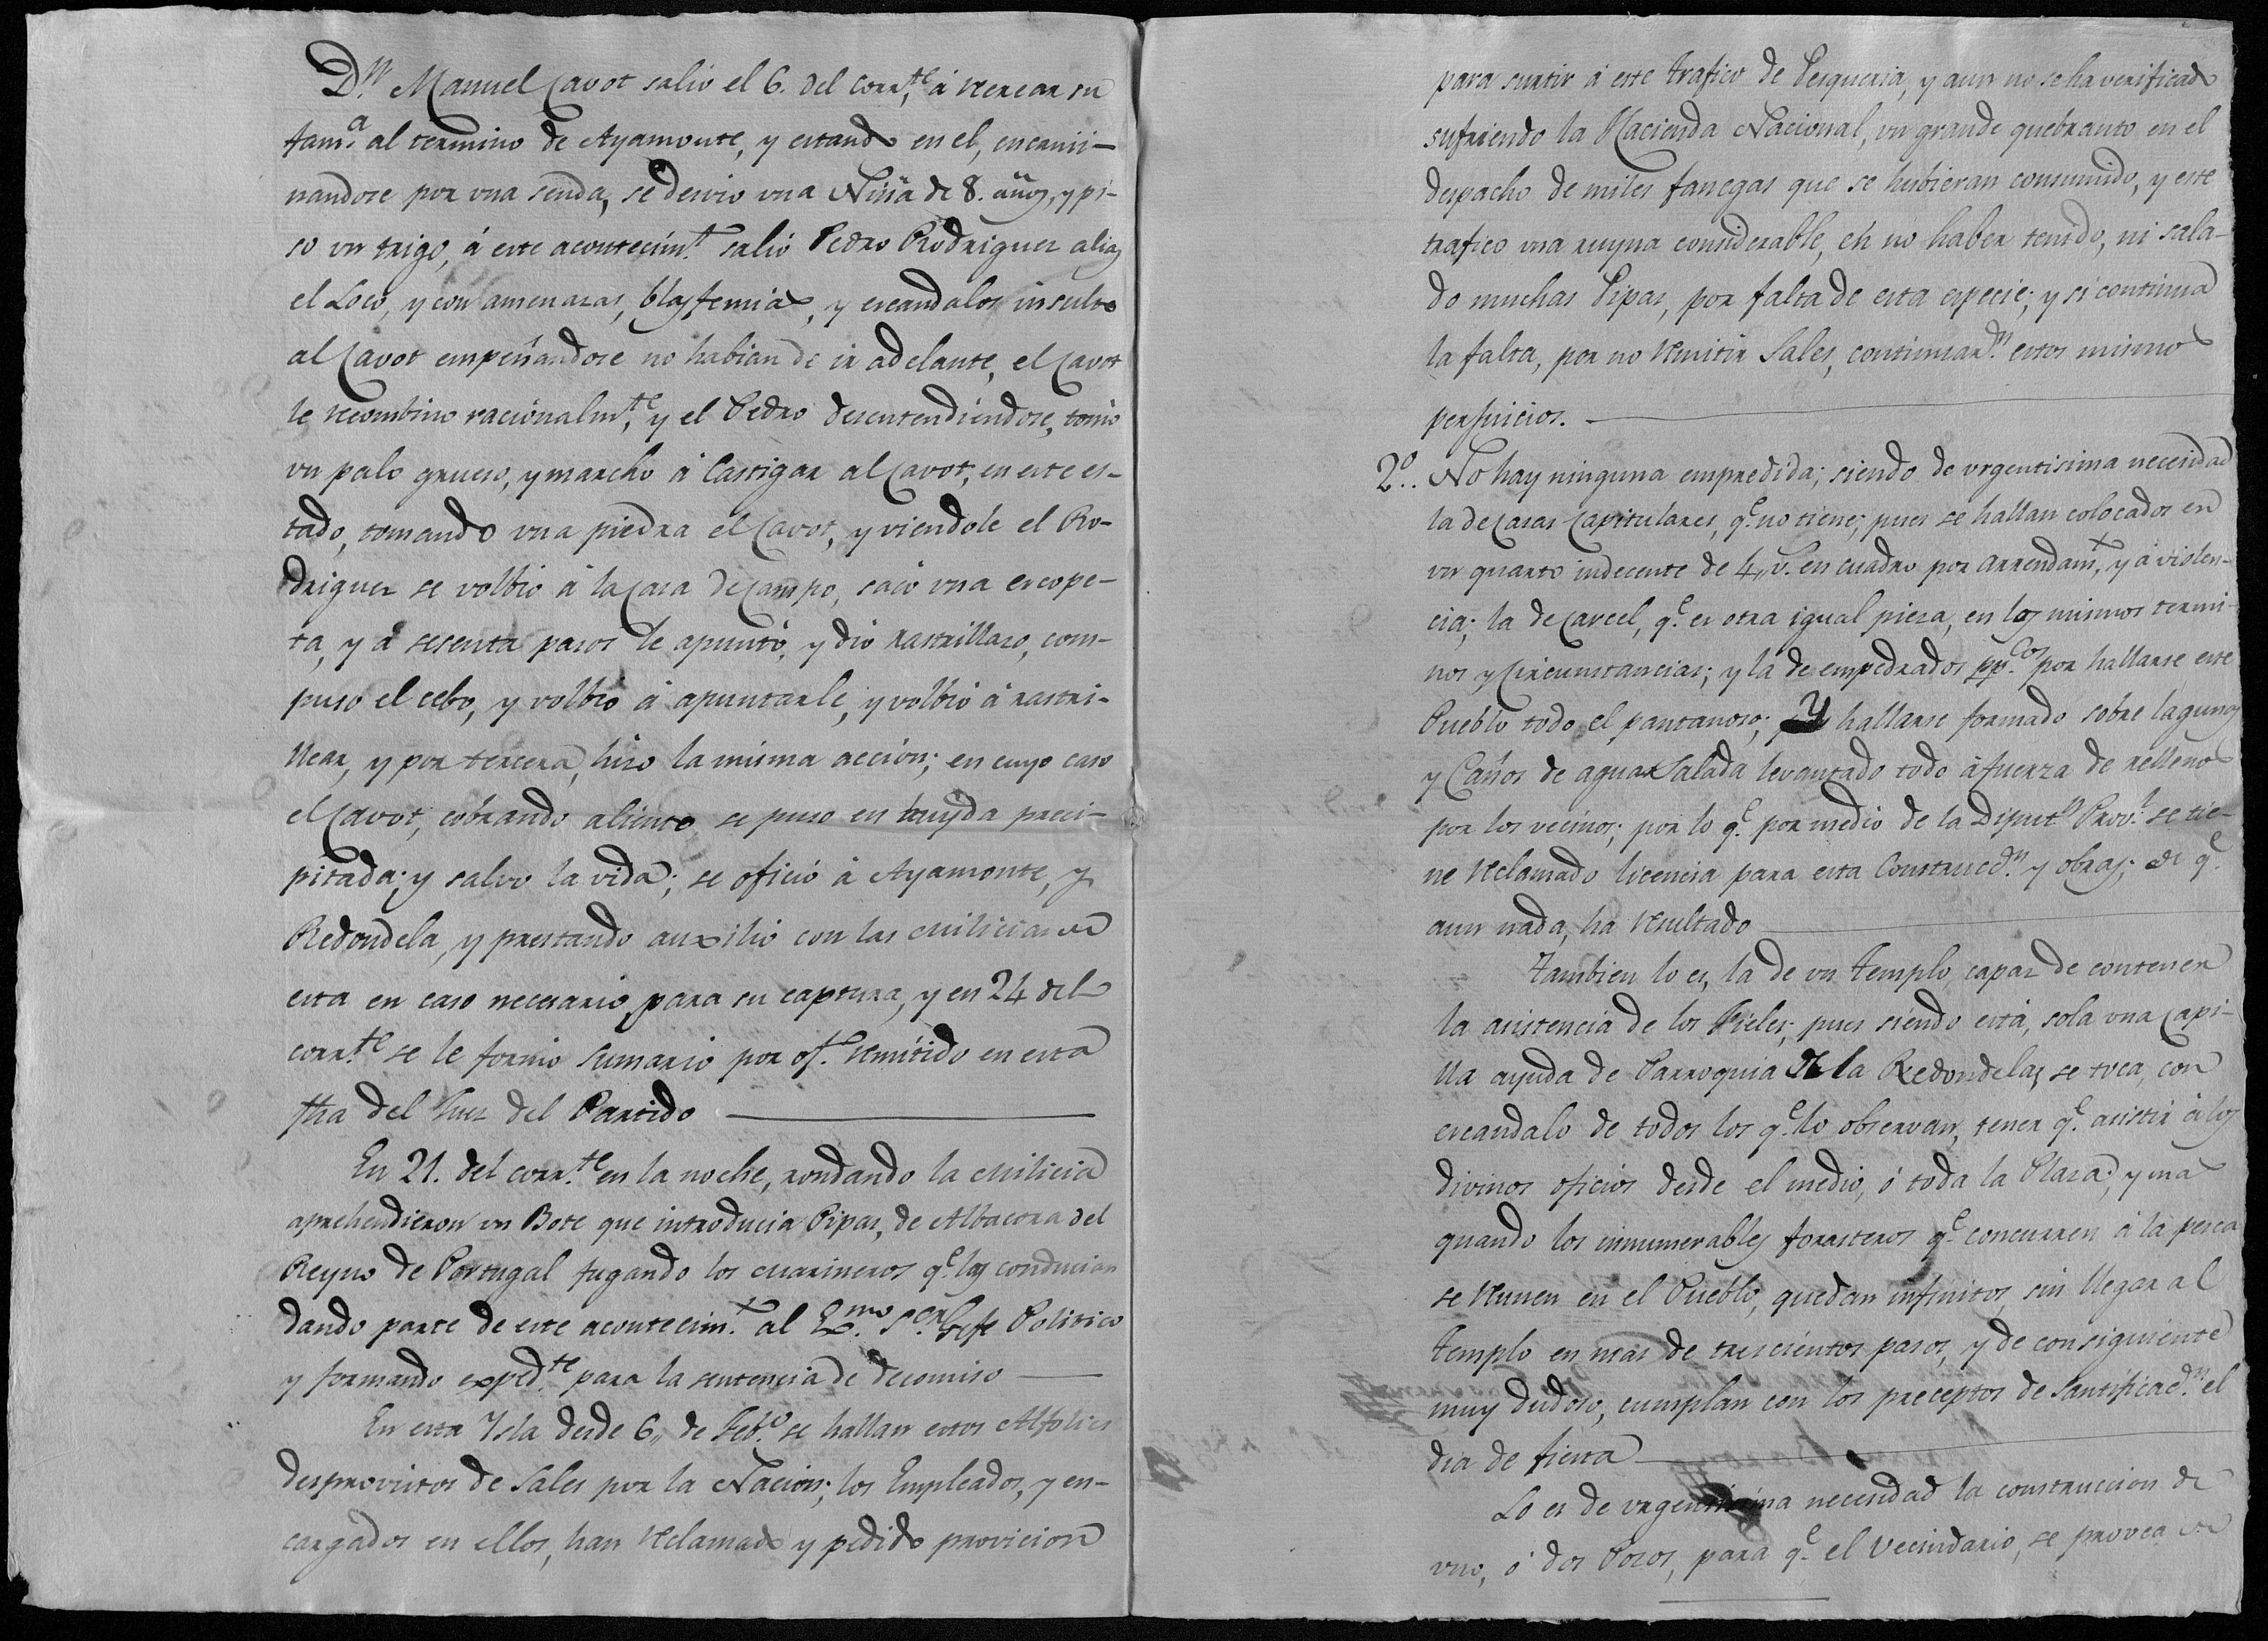 Dn. Manuel Cavot salio el 6. del corrte. á recrear su
fama. al termino de Ayamonte, y estando en el, encami-
nandose por una senda, se desvio una Niña de 8. años, y pi-
so un trigo, á este acontecimto. salió Pedro Rodriguez alias
el Loco, y con amenazas, blasfemias, y escandalos insulto
al Cavot empeñandose no habian de ir adelante, el Cavot
le recombino racionalmte. y el Pedro desentendiendose, tomó
un palo grueso, y marcho á Castigar al Cavot, en este es-
tado, tomando una piedra el Cavot, y viendole el Ro-
driguez se volbió á la Casa de Campo, sacó una escope-
ta, y á sesenta pasos le apuntó, y dió rastrillazo, com-
puso el cebo, y volbió á apuntarle, y volbió á rastri-
llear, y por tercera, hizo la misma acción; en cuyo caso
el Cavot, cobrando aliento se puso en huyda preci-
pitada; y salvo la vida; se ofició á Ayamonte, y
Redondela, y prestando auxilio con las Milicias de
esta en caso necesario para su captura, y en 24 del
corrte. se le formó Sumario por oft. remitido en esta
fha del Juez del Partido
En 21. del corrte. en la noche, rondando la Milicia
aprehendieron un Bote que introducia Pipas, de Albacora del
Reyno de Portugal fugando los Marineros qe. las conducian
dando parte de este acontecimt. al Exmo. Sor. Gefe Politico
y formando expedte. para la sentencia de decomiso
En esta Ysla desde 6,, de Febo. se hallan estos Alfolies
desprovistos de Sales por la Nacion; los Empleados, y en-
cargados en ellos, han reclamado y pedido provicion
para surtir á este trafico de Pesqueria, y aun no se ha verificado
sufriendo la Hacienda Nacional, un grande quebranto en el
despacho de miles fanegas que se hubieran consumido, y este
trafico una ruyna considerable, en no haber tenido, ni sala-
do muchas Pipas, por falta de esta especie; y si continua
la falta, por no remitir Sales, continuarán. estos mismos
perjuicios.
2º.. No hay ninguna empredida; siendo de urgentisima necesidad
la de Casas Capitulares, qe. no tiene; pues se hallan colocados en
un quarto indecente de 4,, v. en cuadro por arrendamt., y á violen-
cia; la de Carcel, qe. es otra igual pieza, en los mismos termi-
nos y Circunstancias; y la de empedrados ppcos. por hallarse este
Pueblo todo el pantanoso; Y hallarse formado sobre lagunas
y Caños de agua Salada levantado todo á fuerza de rellenos
por los vecinos; por lo qe. por medio de la Diputn. Provl. se tie-
ne reclamado licencia para esta Construccn. y obras; de qe.
aun nada, ha resultado
Tambien lo es, la de un Templo, capaz de contener
la asistencia de los Fieles; pues siendo está, sola una Capi-
lla ayuda de Parroquia de la Redondela, se toca, con
escandalo de todos los qe. lo observan, tener qe. asistir á los
divinos oficios desde el medio, ó toda la Plaza; y mas
quando los innumerables forasteros qe. concurren á la pesca
se reunen en el Pueblo, quedan infinitos, sin llegar al
templo en mas de trescientos pasos, y de consiguiente
muy dudoso, cumplan con los preceptos de Santificacn. el
dia de fiesta
Lo es de urgentisima necesidad la construccion de
uno, ó dos Pozos, para qe. el Vecindario, se provea de